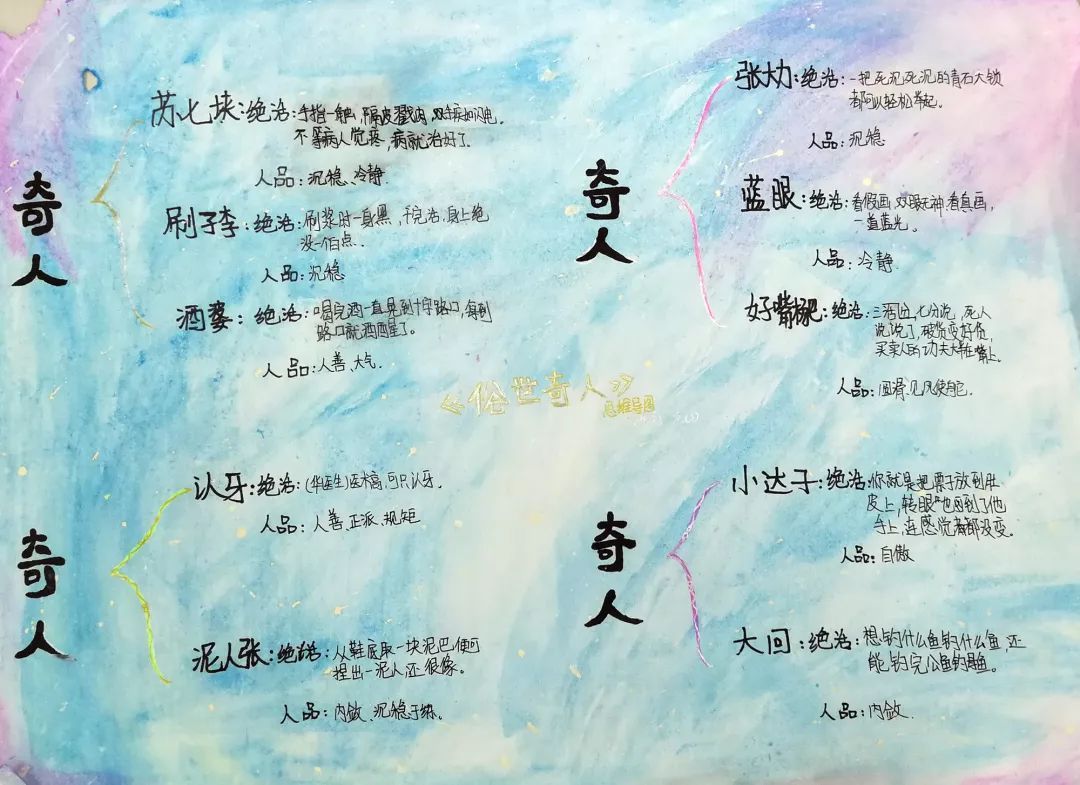 奇人
苏七块:绝活:手指一触,隔皮戳肉,双手疾如闪电,
不等病人觉疼,病就治好了.
人品:沉稳、冷静.
刷子李:绝活:刷浆时一身黑,干完活,身上绝
没一个白点.
人品:沉稳
酒婆:绝活:喝完酒一直晃到十字路口,每到
路口就酒醒了.
人品:人善、大气.
奇人
张大力:绝活:一把死沉死沉的青石大锁
都可以轻松举起.
人品:沉稳
蓝眼:绝活:看假画,双眼无神,看真画,
一道蓝光。
人品:冷静.
好嘴杨巴:绝活:三分,七分说,死人
说说了,破货变好货,
买卖人的功夫大半在嘴上.
人品:圆滑、见风使舵.
《俗世奇人》
思维导图
奇人
认牙:绝活:(华医生)医术高,可只认牙.
人品:人善、正派、规矩
泥人张:绝活:从鞋底取一块泥巴,便可
捏出一泥人还很像。
人品:内敛、沉稳干练。
奇人
小达子:绝活:你就是把票子放到肚
皮上,转眼也回到了他
手上,连感觉都没变。
人品:自傲
大回:绝活:想钓什么鱼钓什么鱼,还
能钓完公鱼钓母鱼。
人品:内敛.